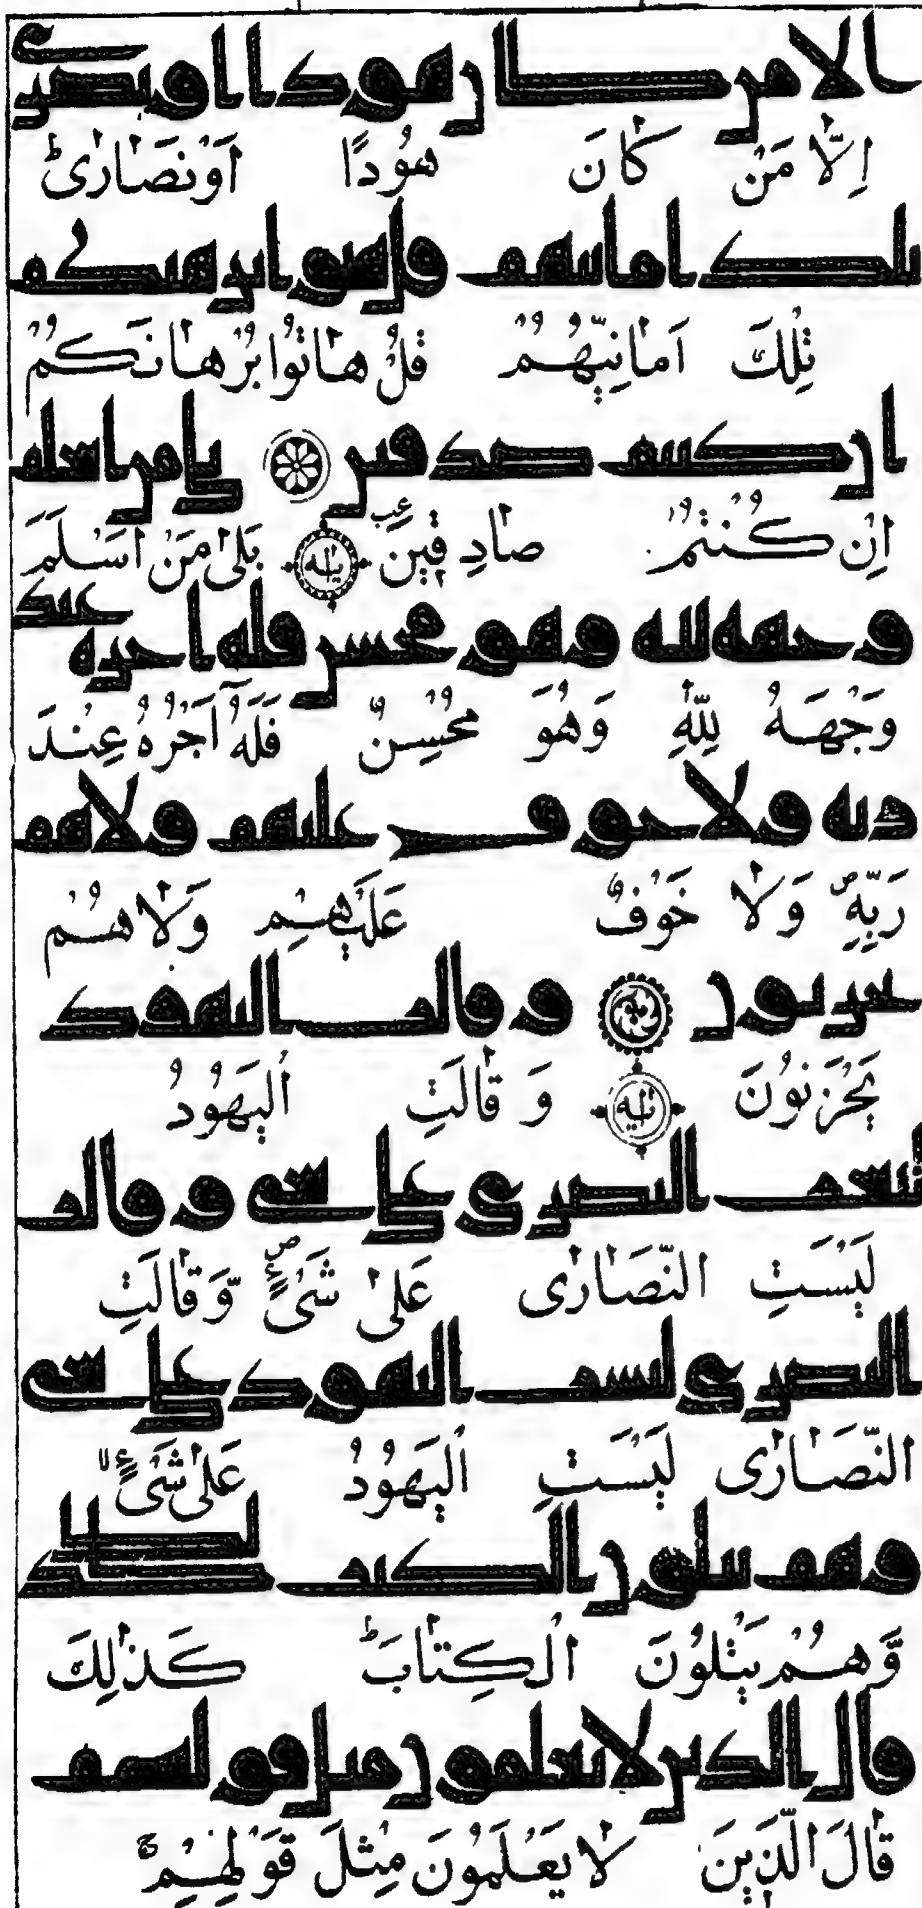 الا من كان هودا او نصرى
اِلَّا مَنْ كَانَ هُودًا اَوْ نَصَارٰى ط
تلك امانيهم قل هاتوا برهنكم
تِلْكَ اَمَانِيُّهُمْ قُلْ هَاتُوا بُرْهَانَكُمْ
ان كنتم صدقين بلى من اسلم
اِنْ كُنْتُمْ صَادِقِينَ عب آية بَلٰى مَنْ اَسْلَمَ
وجهه لله وهو محسن فله اجره عند
وَجْهَهُ لِلّٰهِ وَهُوَ مُحْسِنٌ فَلَهُٓ اَجْرُهُ عِنْدَ
ربه ولا خوف عليهم ولا هم
رَبِّهٖ ص وَلَا خَوْفٌ عَلَيْهِمْ وَلَا هُمْ
يحزنون وقالت اليهود
يَحْزَنُونَ آية وَقَالَتِ الْيَهُودُ
ليست النصرى على شى وقالت
لَيْسَتِ النَّصَارٰى عَلٰى شَىْءٍ ص وَّقَالَتِ
النصرى ليست اليهود على شى
النَّصَارٰى لَيْسَتِ الْيَهُودُ عَلٰى شَىْءٍ لا
وهم يتلون الكتب كذلك
وَّهُمْ يَتْلُونَ الْكِتَابَ ط كَذٰلِكَ
قال الذين لا يعلمون مثل قولهم
قَالَ الَّذِينَ لَا يَعْلَمُونَ مِثْلَ قَوْلِهِمْ ج